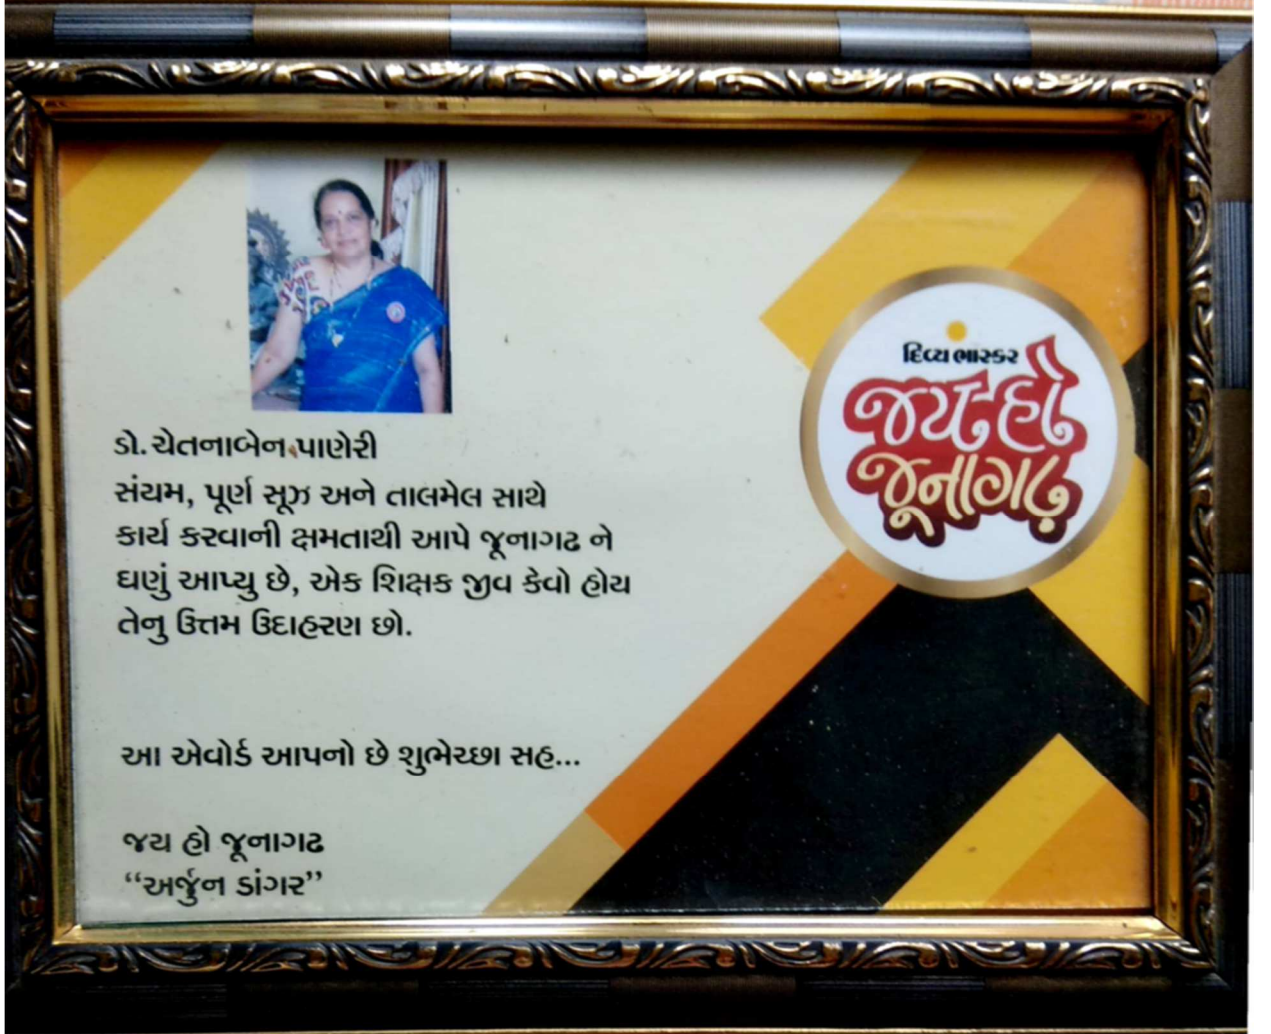 દિવ્ય ભાસ્કર
જય હો
જૂનાગઢ
ડો. ચેતનાબેન પાણેરી
સંયમ, પૂર્ણ સૂઝ અને તાલમેલ સાથે
કાર્ય કરવાની ક્ષમતાથી આપે જૂનાગઢ ને
ઘણું આપ્યુ છે, એક શિક્ષક જીવ કેવો હોય
તેનુ ઉત્તમ ઉદાહરણ છો.
આ એવોર્ડ આપનો છે શુભેચ્છા સહ...
જય હો જૂનાગઢ
“અર્જુન ડાંગર”